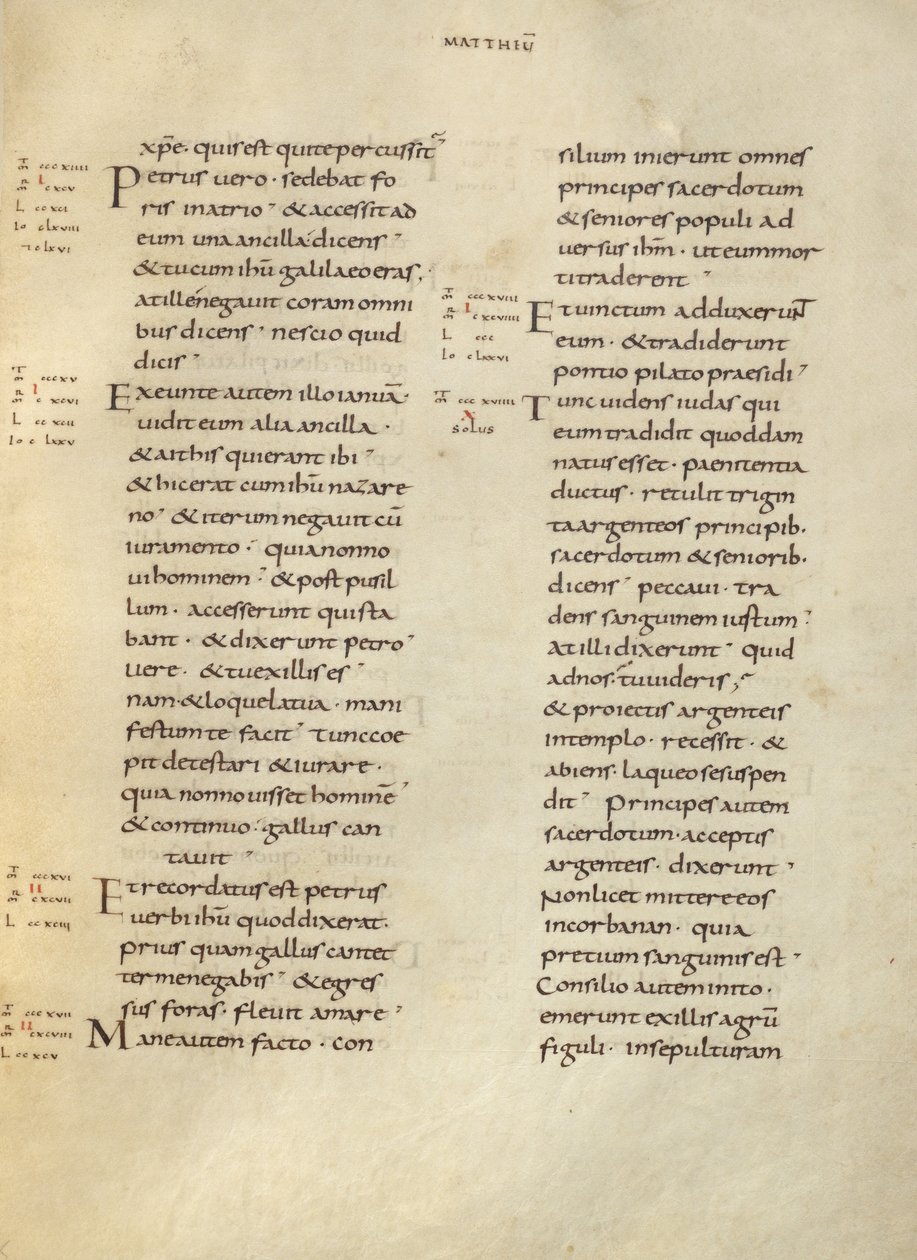 MATTHEŪ
xp̄e· quis est qui te percussit
Petrus uero· sedebat fo
ris in atrio & accessit ad
eum una ancilla dicens
& tu cum ihū galilaeo eras,
at ille negauit coram omni
bus dicens nescio quid
dicis
Exeunte autem illo ianuā·
uidit eum alia ancilla·
& ait his qui erant ibi
& hic erat cum ihū nazare
no & iterum negauit cū
iuramento· quia non no
ui hominem & post pusil
lum· accesserunt qui sta
bant· & dixerunt petro
uere· & tu ex illis es
nam· & loquela tua· mani
festum te facit Tunc coe
pit detestari & iurare·
quia non nouisset hominē
& continuo· gallus can
tauit
Et recordatus est petrus
uerbi ihū quod dixerat·
prius quam gallus cantet
ter me negabis & egres
sus foras· fleuit amare
Mane autem facto· con
cccxiiii
I
cxcv
L ccxci
Io clxviii
clxvi
cccxv
I
cxcvi
L ccxcii
Io clxxv
cccxvi
II
cxcvii
L ccxciii
cccxvii
II
cxcviii
L ccxcv
silium inierunt omnes
principes sacerdotum
& seniores populi ad
uersus ihm̄· ut eum mor
ti traderent
Et uinctum adduxerunt
eum· & tradiderunt
pontio pilato praesidi
Tunc uidens iudas qui
eum tradidit quod dam
natus esset· paenitentia
ductus· retulit trigin
ta argenteos principib·
sacerdotum & seniorib·
dicens peccaui· tra
dens sanguinem iustum
At illi dixerunt quid
ad nos· tu uideris,
& proiectis argenteis
in templo· recessit· &
abiens· laqueo se suspen
dit Principes autem
sacerdotum· acceptis
argenteis· dixerunt
Non licet mittere eos
in corbanan· quia
pretium sanguinis est
Consilio autem inito·
emerunt ex illis agrū
figuli· in sepulturam
cccxviii
I
cxcviiii
L ccc
Io clxxvi
cccxviiii
X
solus